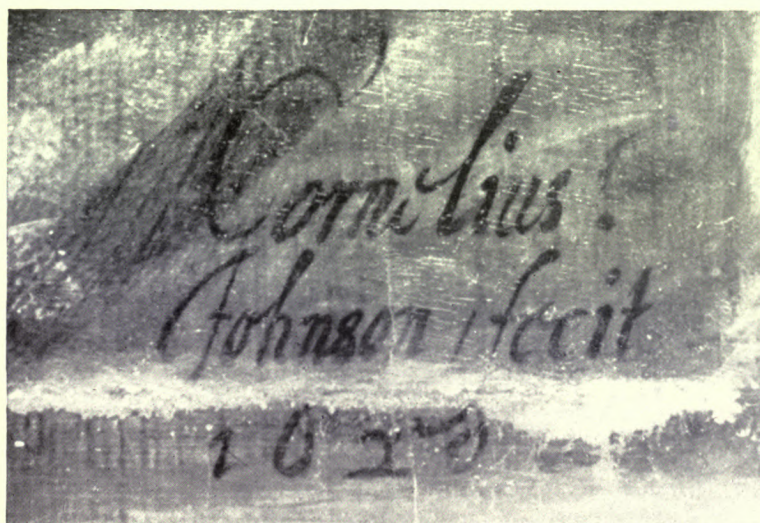 Cornelius
Johnson fecit